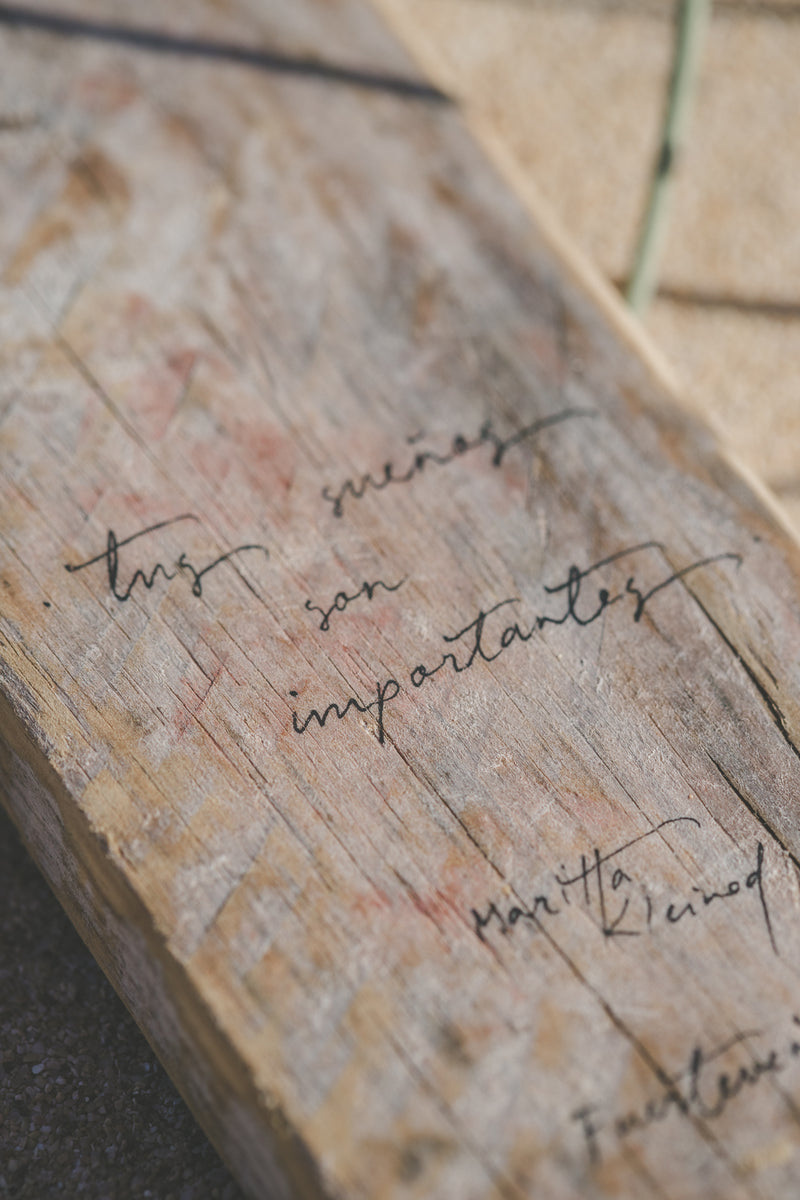 tus sueños
son
importantes
Maritta
Kleinod